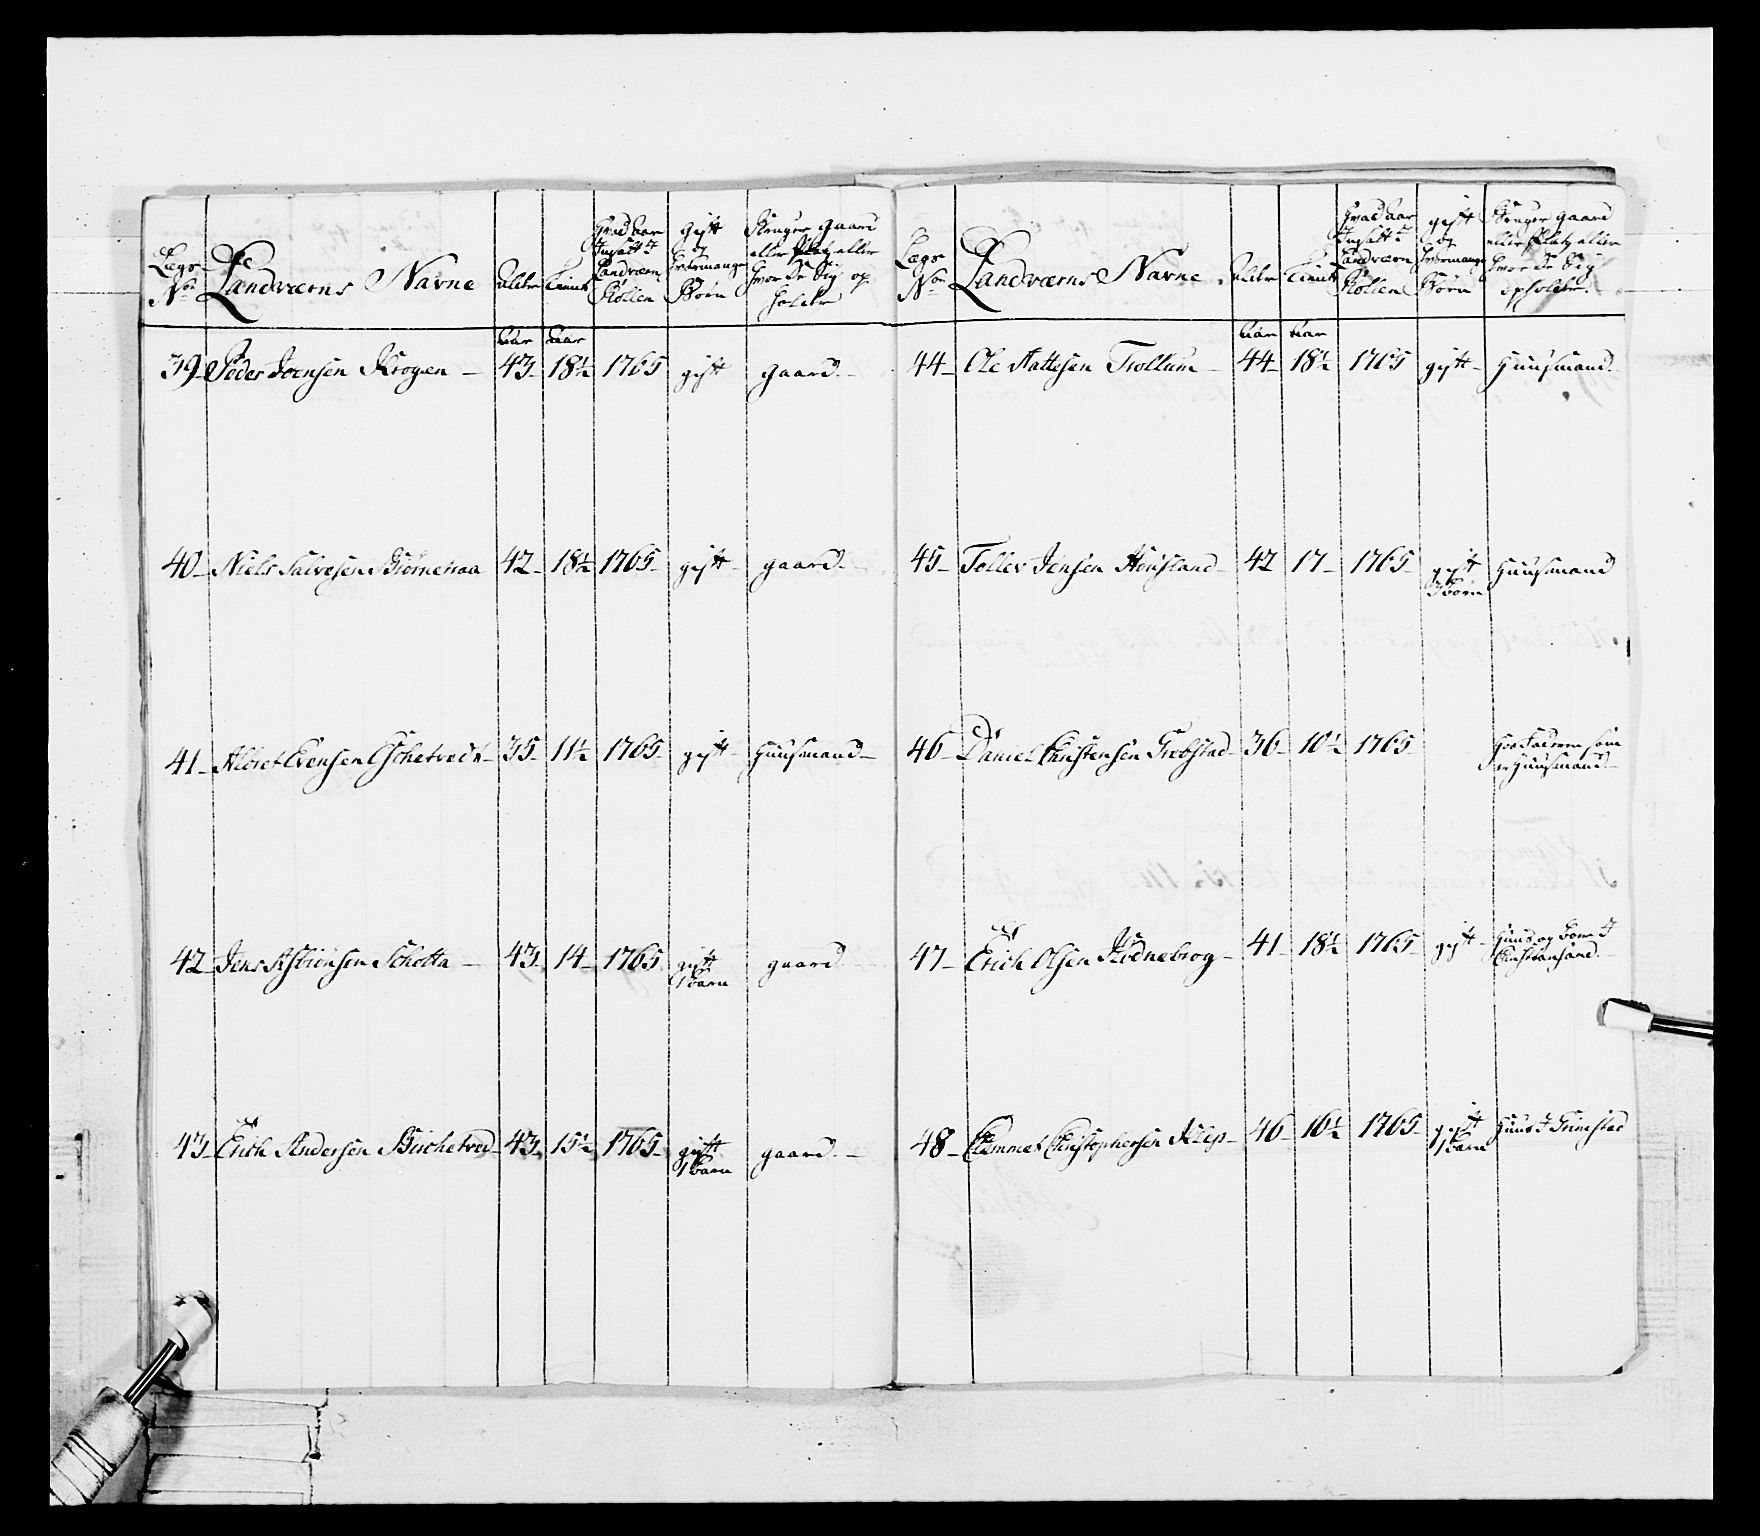 Lægs No
Landværns Navne
Alder
Tient
Hvad Aar Indsatt i Landværn Rollen
gift og hvormange Børn
Bruger gaard eller Platz eller hvor de sig opholder
Aar Aar
39 Peder Joensen Krogen 43 18½ 1765 gift gaard
40 Niels Salvesen Biørneraa 42 18½ 1765 gift gaard
41 Albret Evensen 35 11½ 1765 gift Huusmand
42 Jens Asbiønsen Schotta 43 14 1765 gift 1 barn gaard
43 Erich Andersen Birchetved 43 15½ 1765 gift 1 barn gaard
Lægs No
Landværns Navne
Alder
Tient
Hvad Aar Indsatt i Landværn Rollen
gift og hvormange Børn
Bruger gaard eller Platz eller hvor de sig opholder
Aar Aar
44 Ole Trollum 44 18½ 1765 gift Huusmand
45 Tollev Jensen 42 17 1765 gift Børn Huusmand
46 Daniel Christensen 36 10½ 1765 hos Faderen som er Huusmand
47 Erich Olsen Rødnebrog 41 18½ 1765 gift Huus og i Christiansand
48 Clemmet Christophersen Klep 46 16½ 1765 gift 1 barn Huus i Grimstad